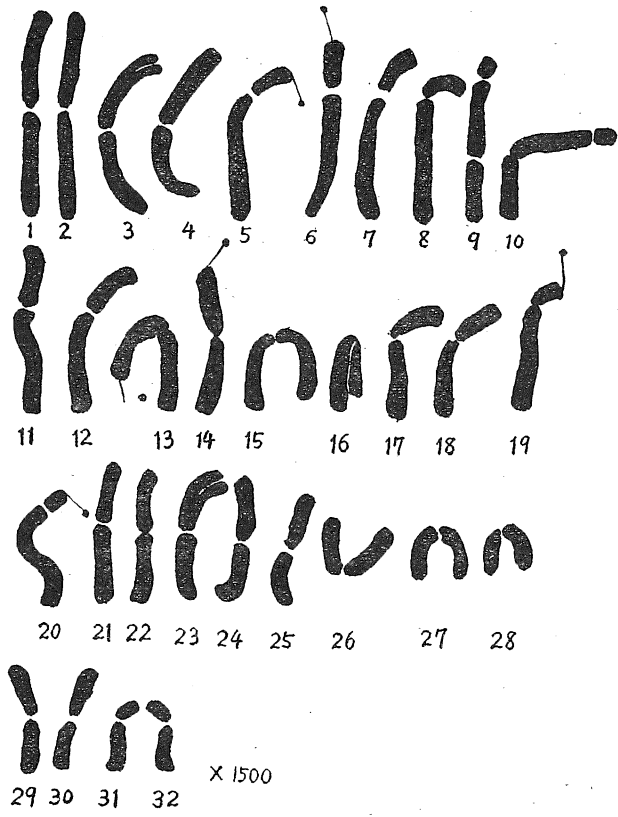 1 2 3 4 5 6 7 8 9 10
11 12 13 14 15 16 17 18 19
20 21 22 23 24 25 26 27 28
29 30 31 32 X 1500